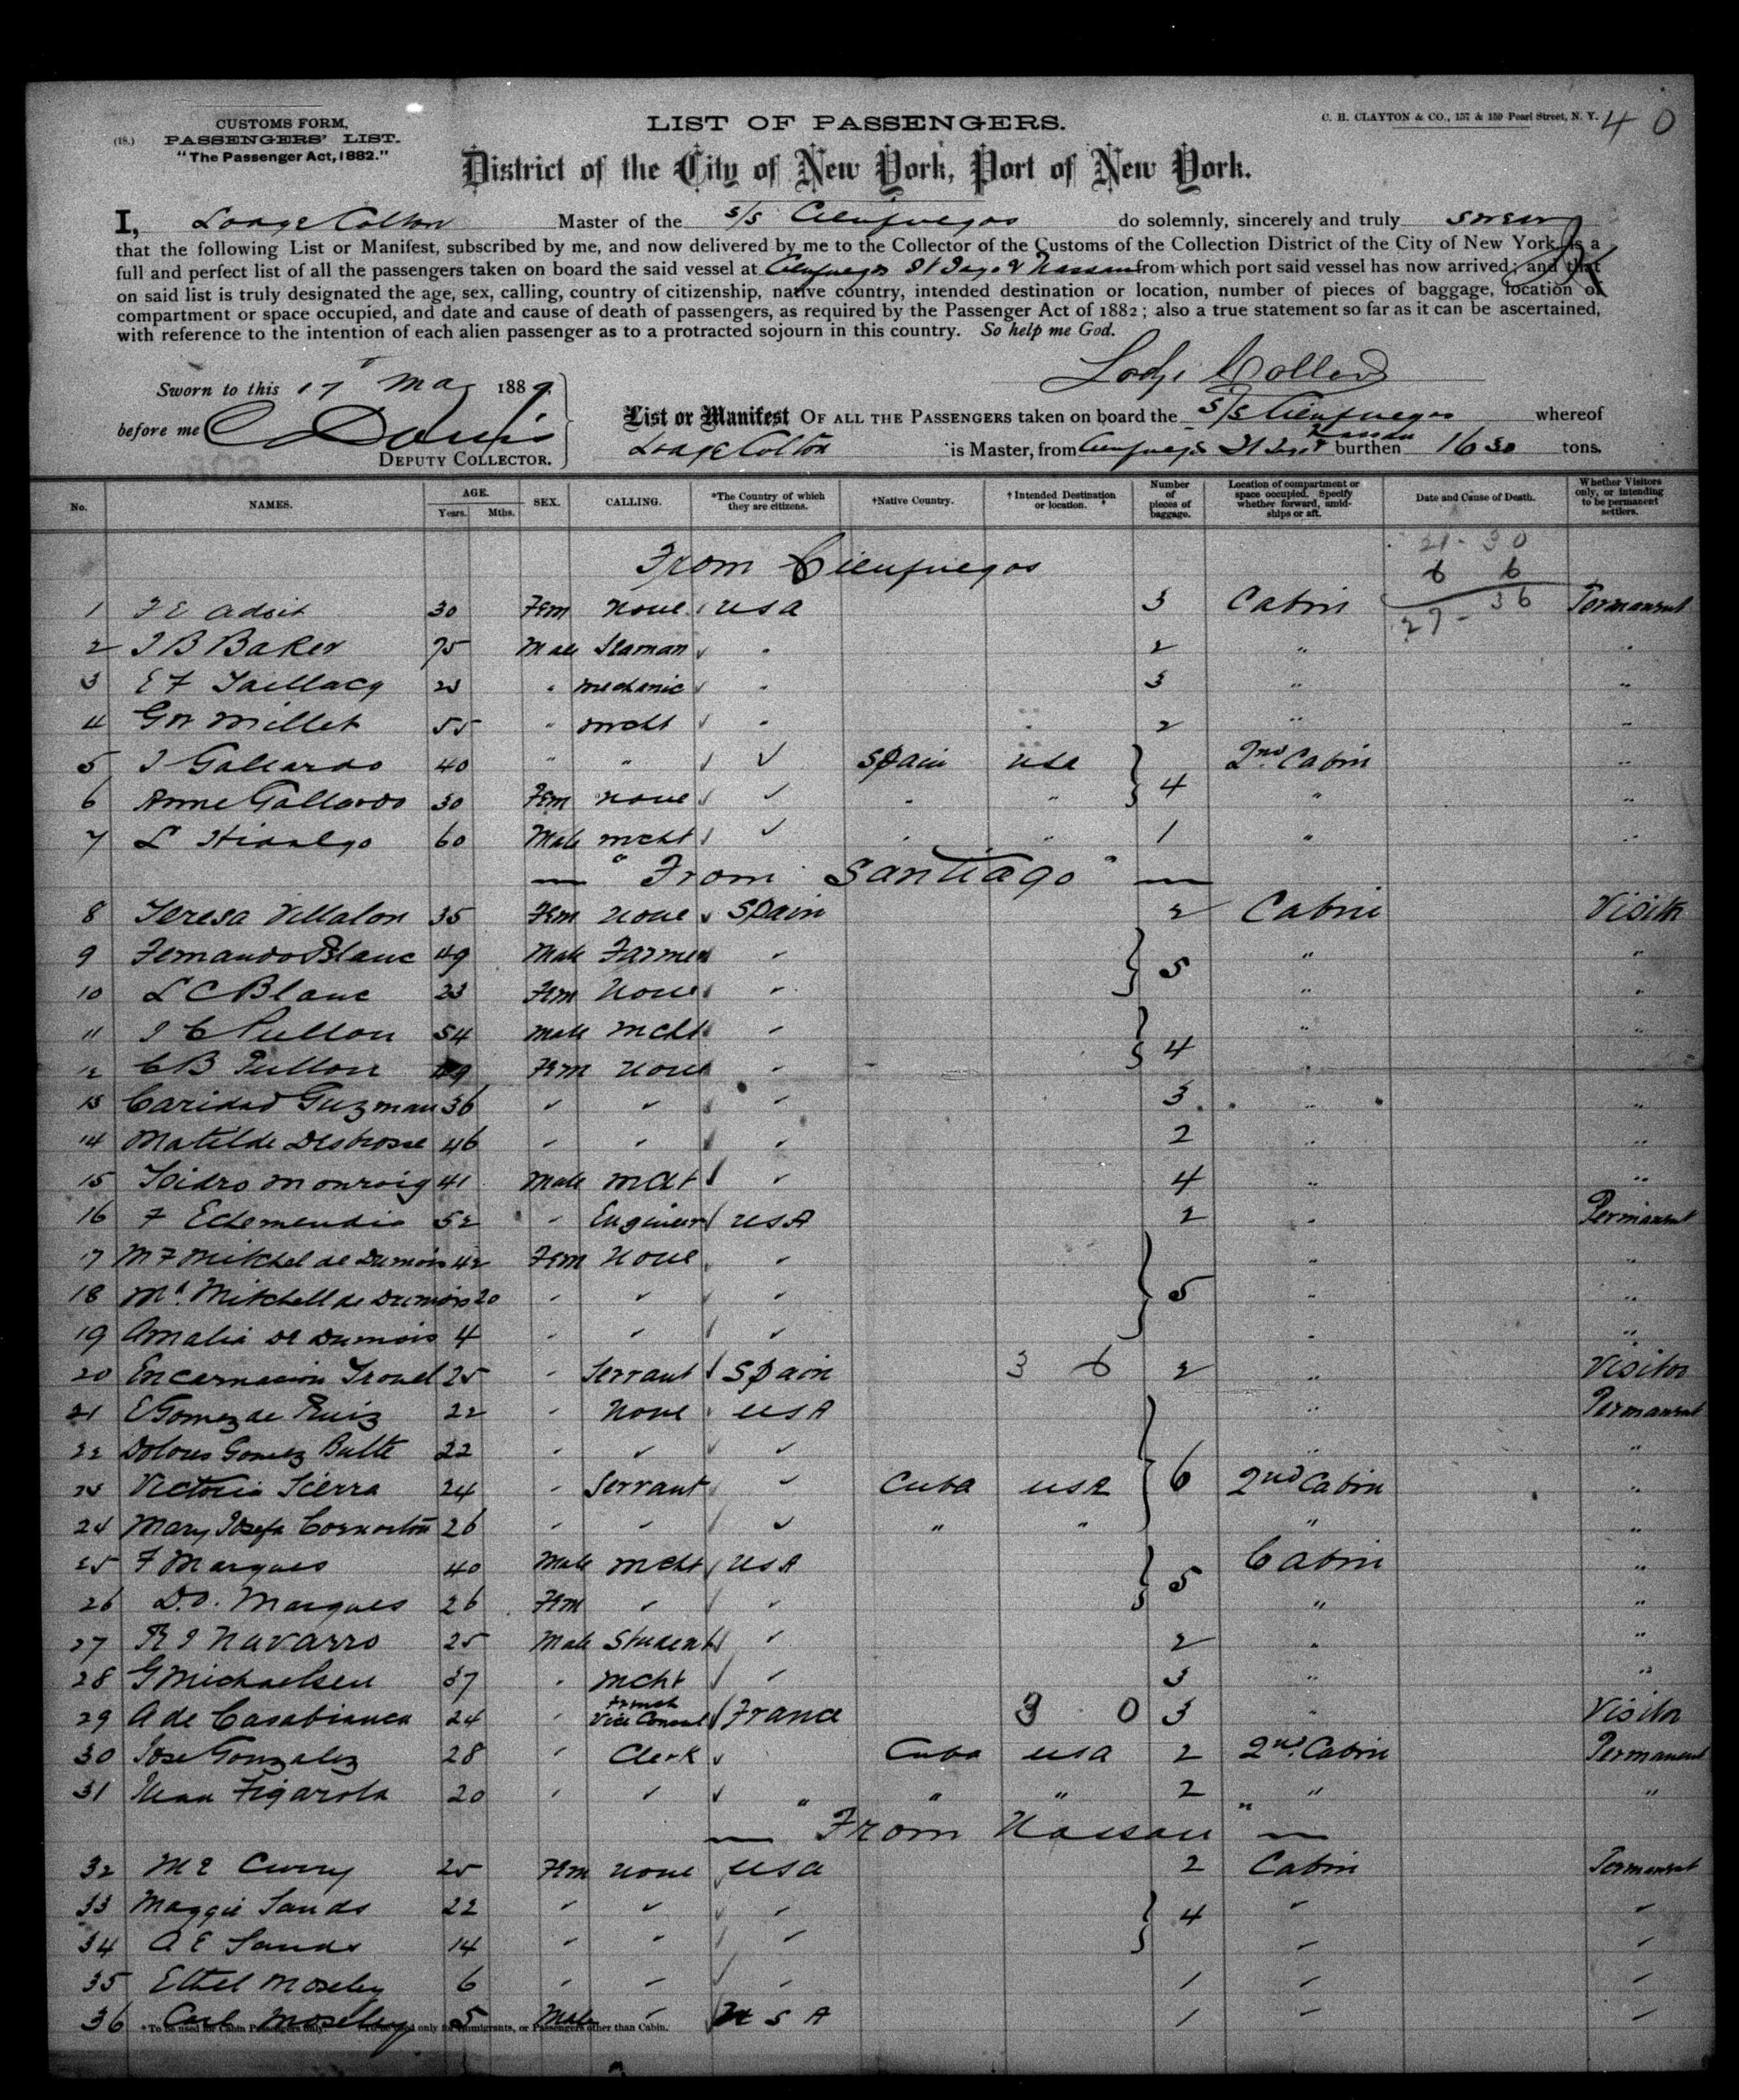 (18.)
CUSTOMS FORM,
PASSENGERS' LIST.
"The Passenger Act, 1882."
LIST OF PASSENGERS.
C. H. CLAYTON & CO., 157 & 159 Pearl Street, N. Y.
40
District of the City of New York, Port of New York.
I, Lodge Colton Master of the s/s Cienfuegos do solemnly, sincerely and truly swear
that the following List or Manifest, subscribed by me, and now delivered by me to the Collector of the Customs of the Collection District of the City of New York, is a
full and perfect list of all the passengers taken on board the said vessel at Cienfuegos St Jago & Nassau from which port said vessel has now arrived; and that
on said list is truly designated the age, sex, calling, country of citizenship, native country, intended destination or location, number of pieces of baggage, location of
compartment or space occupied, and date and cause of death of passengers, as required by the Passenger Act of 1882; also a true statement so far as it can be ascertained,
with reference to the intention of each alien passenger as to a protracted sojourn in this country. So help me God.
Sworn to this 17 May 1889
before me
DEPUTY COLLECTOR.
List or Manifest OF ALL THE PASSENGERS taken on board the s/s Cienfuegos whereof
Lodge Colton is Master, from Cienfuegos St Jago & Nassau burthen 1630 tons.
No. NAMES. AGE. Years. Mths. SEX. CALLING. *The Country of which they are citizens. †Native Country. †Intended Destination or location. Number of pieces of baggage. Location of compartment or space occupied. Specify whether forward, amidships or aft. Date and Cause of Death. Whether Visitors only, or intending to be permanent settlers.
21 - 30
6 6
27 - 36
From Cienfuegos
1 F E Adsit 30 Fem none USA 3 Cabin Permanent
2 J B Baker 75 Male Seaman " 2 " "
3 E F Taillacq 23 " mechanic " 3 " "
4 G W Millet 55 " mcht " 2 " "
5 J Gallardo 40 " " ✓ Spain USA 2nd Cabin "
6 Anne Gallardo 30 Fem none ✓ " " 4 " "
7 L Hidalgo 60 Male mcht ✓ " " 1 " "
— "From Santiago" —
8 Teresa Villalon 35 Fem none Spain 2 Cabin Visitor
9 Fernando Blanc 49 Male Farmer " " "
10 L C Blanc 23 Fem None " 5 " "
11 J C Pullon 54 Male mcht " " "
12 C B Pullon Fem None " 4 " "
13 Caridad Guzman 36 " " " 3 " "
14 Matilde Desbrosse 46 " " " 2 " "
15 Isidro Monroig 41 Male mcht " 4 " "
16 F Echemendia 52 " Engineer USA 2 " Permanent
17 M F Mitchel de Dumois 42 Fem None " " "
18 Ma. Mitchell de Dumois 20 " " " 5 " "
19 Amalia de Dumois 4 " " " " "
20 Encarnacion 25 " Servant Spain 3 6 2 " Visitor
21 E Gomez de Ruiz 22 " None USA " Permanent
22 Dolores Gomez Batte 22 " " " " "
23 Victoria Sierra 24 " Servant " Cuba USA 6 2nd Cabin "
24 Mary Josefa 26 " " " " " " "
25 F Marques 40 Male mcht USA Cabin "
26 D.O. Marques 26 Fem " " 5 " "
27 R J Navarro 25 Male Student " 2 " "
28 G Michaelsen 37 " mcht " 3 " "
29 A de Casabianca 24 " French Vice Consul France 3 0 3 " Visitor
30 Jose Gonzalez 28 " Clerk Cuba USA 2 2nd Cabin Permanent
31 Juan Figarola 20 " " " " " 2 " "
— From Nassau —
32 M E Curry 25 Fem none USA 2 Cabin Permanent
33 Maggie Sands 22 " " " 4 " "
34 A E Sands 14 " " " " "
35 Ethel Moseley 6 " " " 1 " "
36 Carl Moseley 5 Male " USA 1 " "
*To be used for Cabin Passengers only. †To be used only for Immigrants, or Passengers other than Cabin.